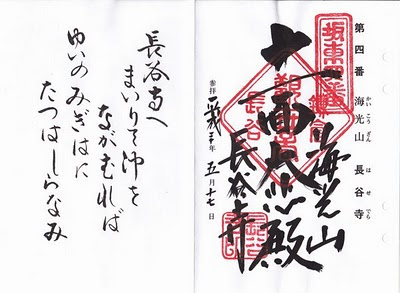 第四番 海光山 長谷寺
かいこうざん はせでら
坂東四番
海光山
十一面大悲殿
長谷寺
参拝 平成二十年 五月十七日
長谷寺へ
まいりて沖を
ながむれば
ゆいのみぎはに
たつはしらなみ